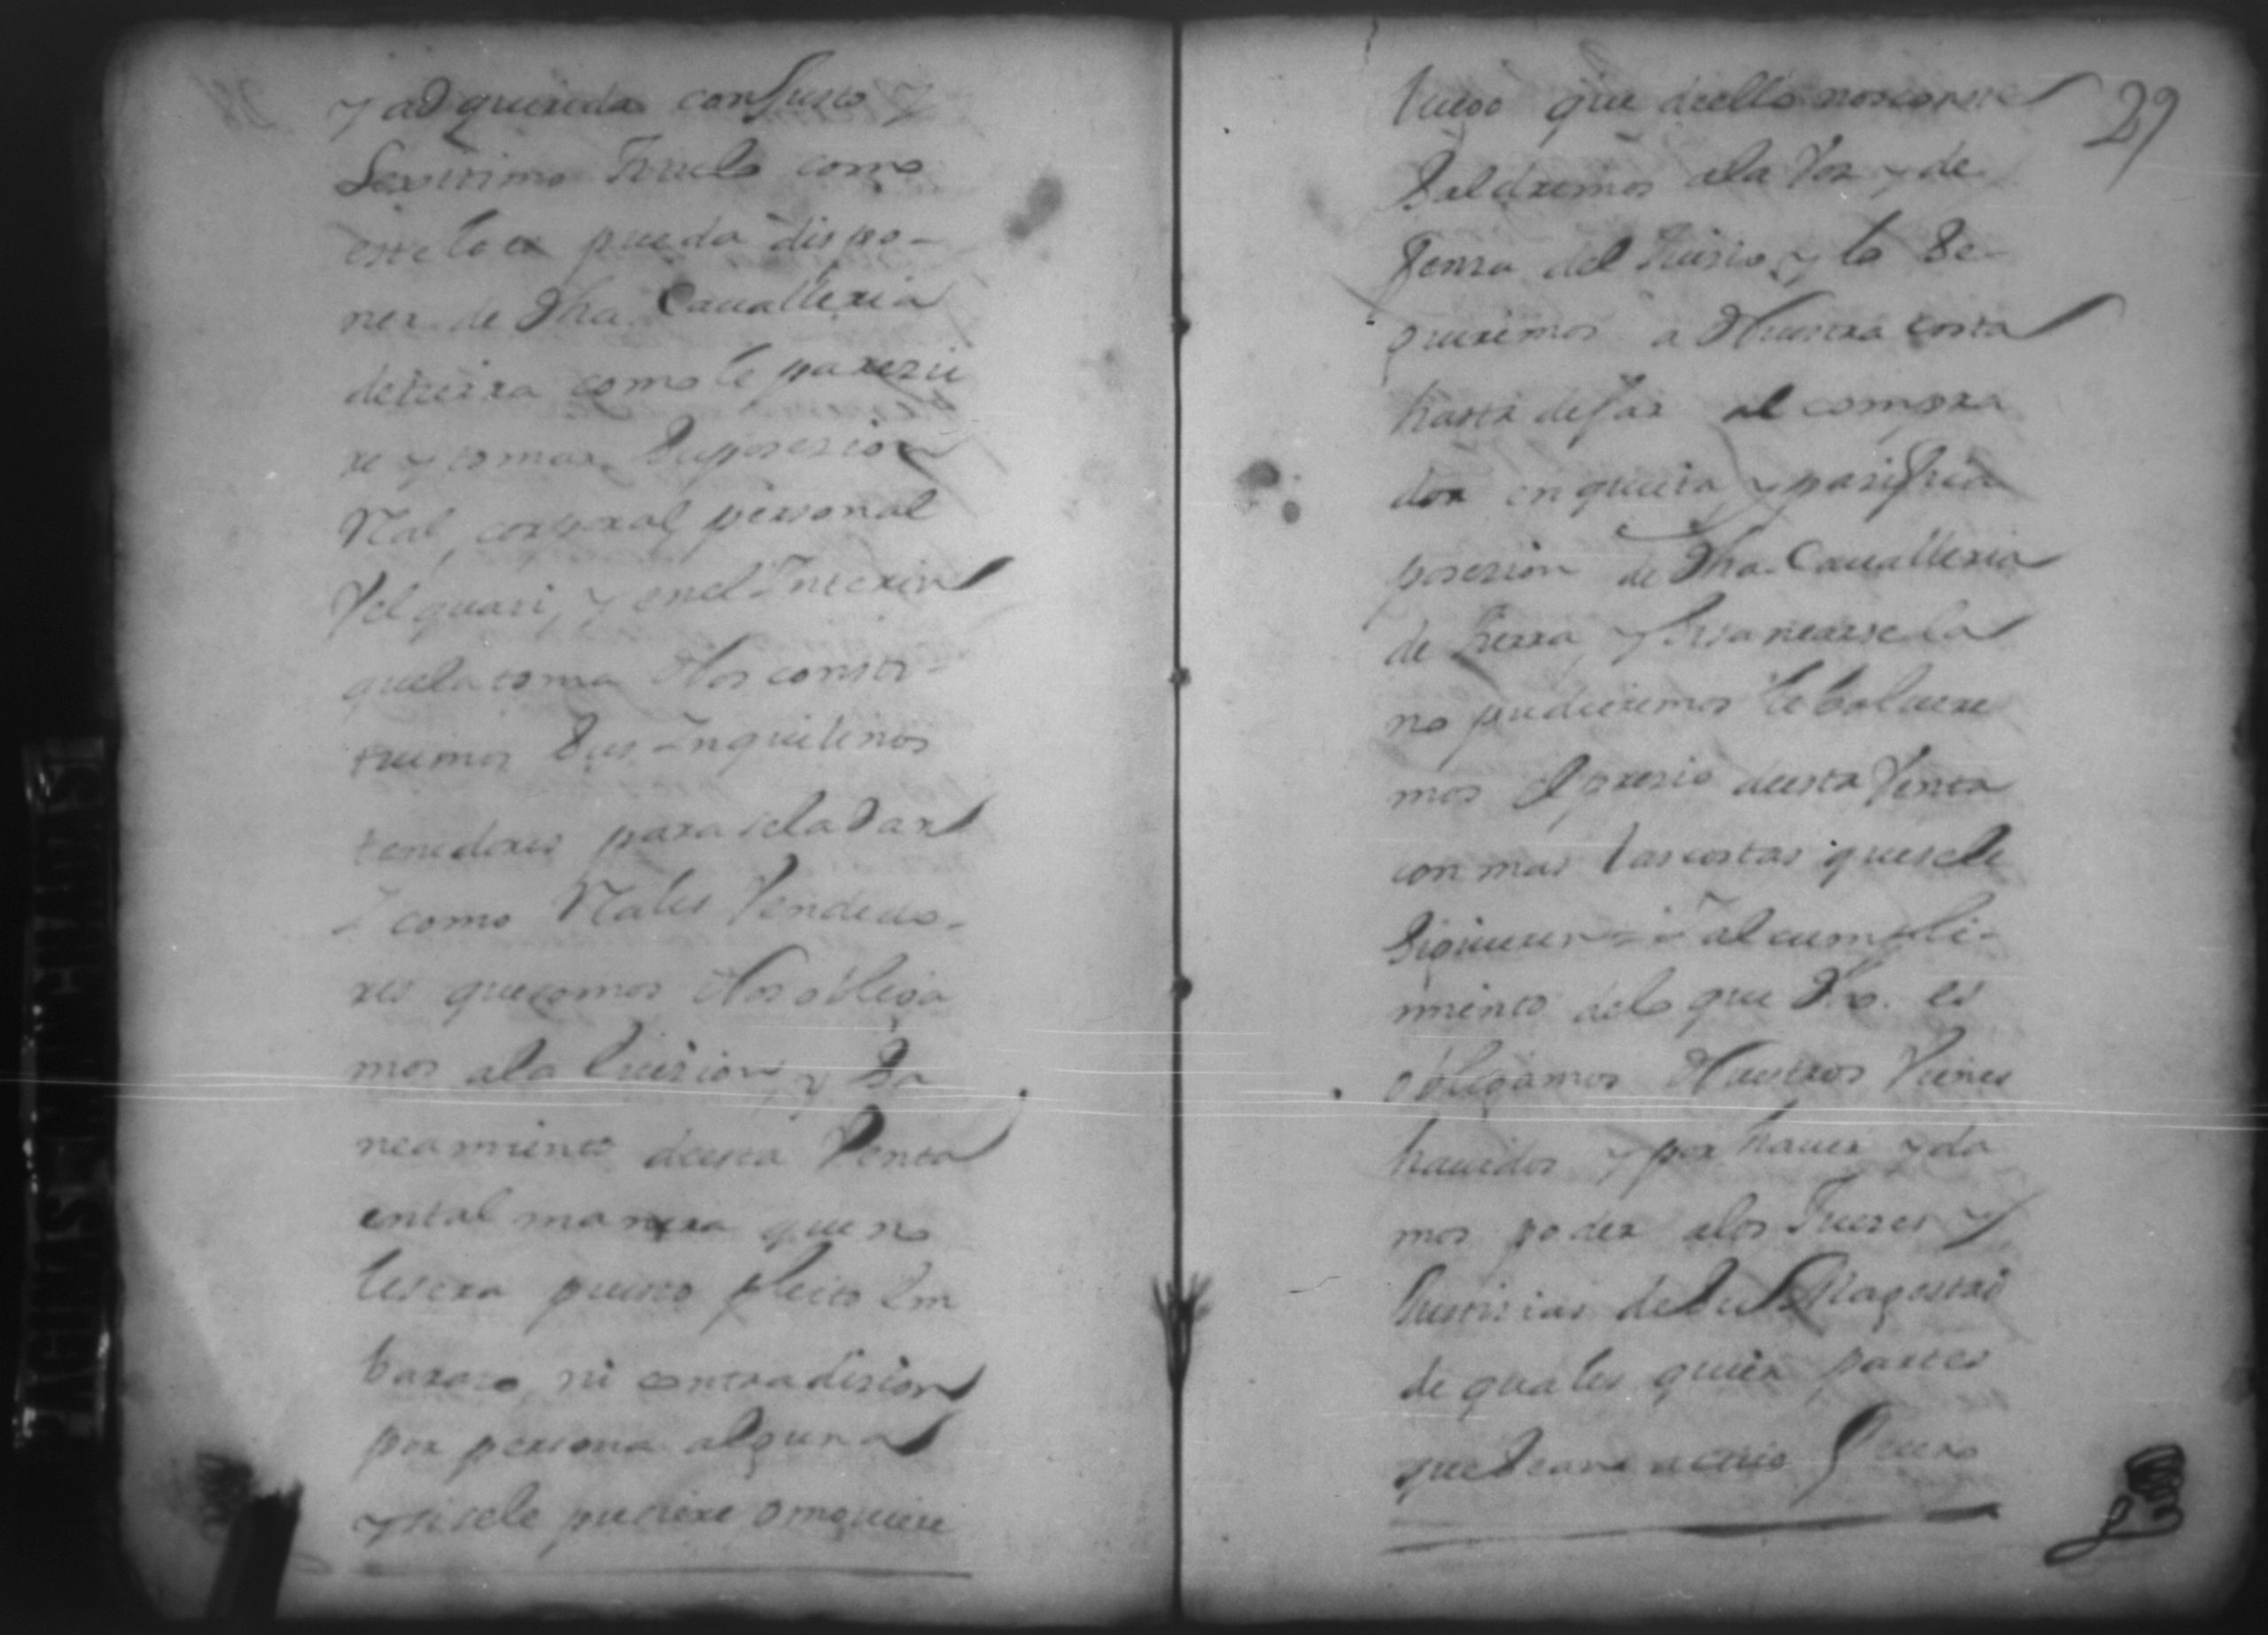 y adquirida con Justo y
Lexitimo Titulo como
este lo es pueda dispo-
ner de dha Cavalleria
detierra como le parezie
re y tomar Suposezion
Real, corporal, personal
Vel quasi, y enel Interin
quela toma Nos consti-
tuimos Sus Inquilinos
tenedores para sela dar
Y como Reales Vendedo-
res quesomos Nos obliga
mos ala Evizion y Sa
neamiento deesta Venta
ental manera que no
lesera puesto pleito Em
barazo, ni contradision
por persona alguna
y sisele pusiere omouiere
29
luego que deello nosconste
Saldremos ala Voz y de
fensa del Juisio y lo Se-
guiremos a Nuestra costa
hasta dejar al compra
dor en quieta y pasifica
posesion de dha Cavalleria
de tierra y Sisanearsela
no pudieremos le bolvere
mos el presio deesta Venta
con mas las costas quesele
Siguieren = Y al cumpli-
miento delo que dho. es
obligamos Nuestros Vienes
havidos y por haver y da
mos poder alos Jueses y
Justisias deSu Magestad
de quales quier partes
que Sean acuio fuero